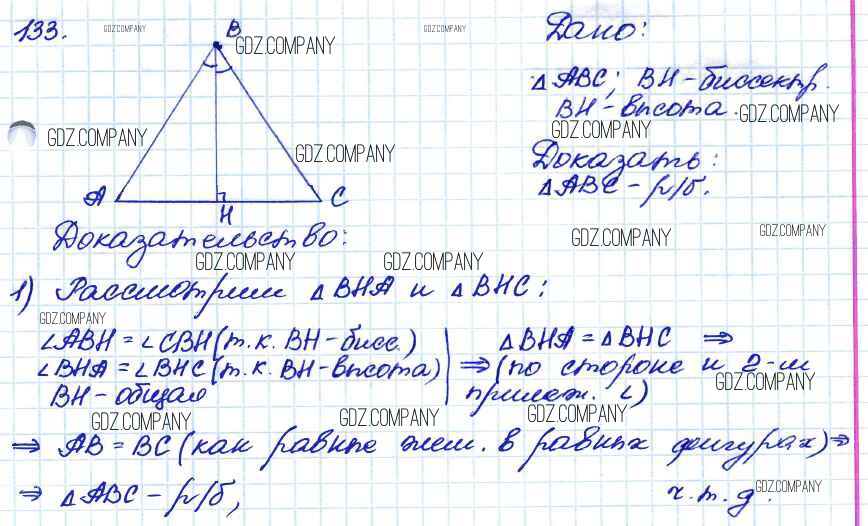 133.
GDZ.COMPANY
B
GDZ.COMPANY
GDZ.COMPANY
Дано:
△ABC; BH-биссектр.
BH-высота.
GDZ.COMPANY
GDZ.COMPANY
GDZ.COMPANY
GDZ.COMPANY
Доказать:
△ABC - р/б.
A
H
C
Доказательство:
GDZ.COMPANY
GDZ.COMPANY
GDZ.COMPANY
GDZ.COMPANY
1) Рассмотрим △BHA и △BHC:
GDZ.COMPANY
∠ABH = ∠CBH (т.к. BH-бисс.)
∠BHA = ∠BHC (т.к. BH-высота)
BH-общая
△BHA = △BHC ⇒
⇒ (по стороне и 2-м
прилеж. ∠)
GDZ.COMPANY
GDZ.COMPANY
GDZ.COMPANY
GDZ.COMPANY
⇒ AB = BC (как равные элем. в равных фигурах) ⇒
⇒ △ABC - р/б,
ч.т.д.
GDZ.COMPANY